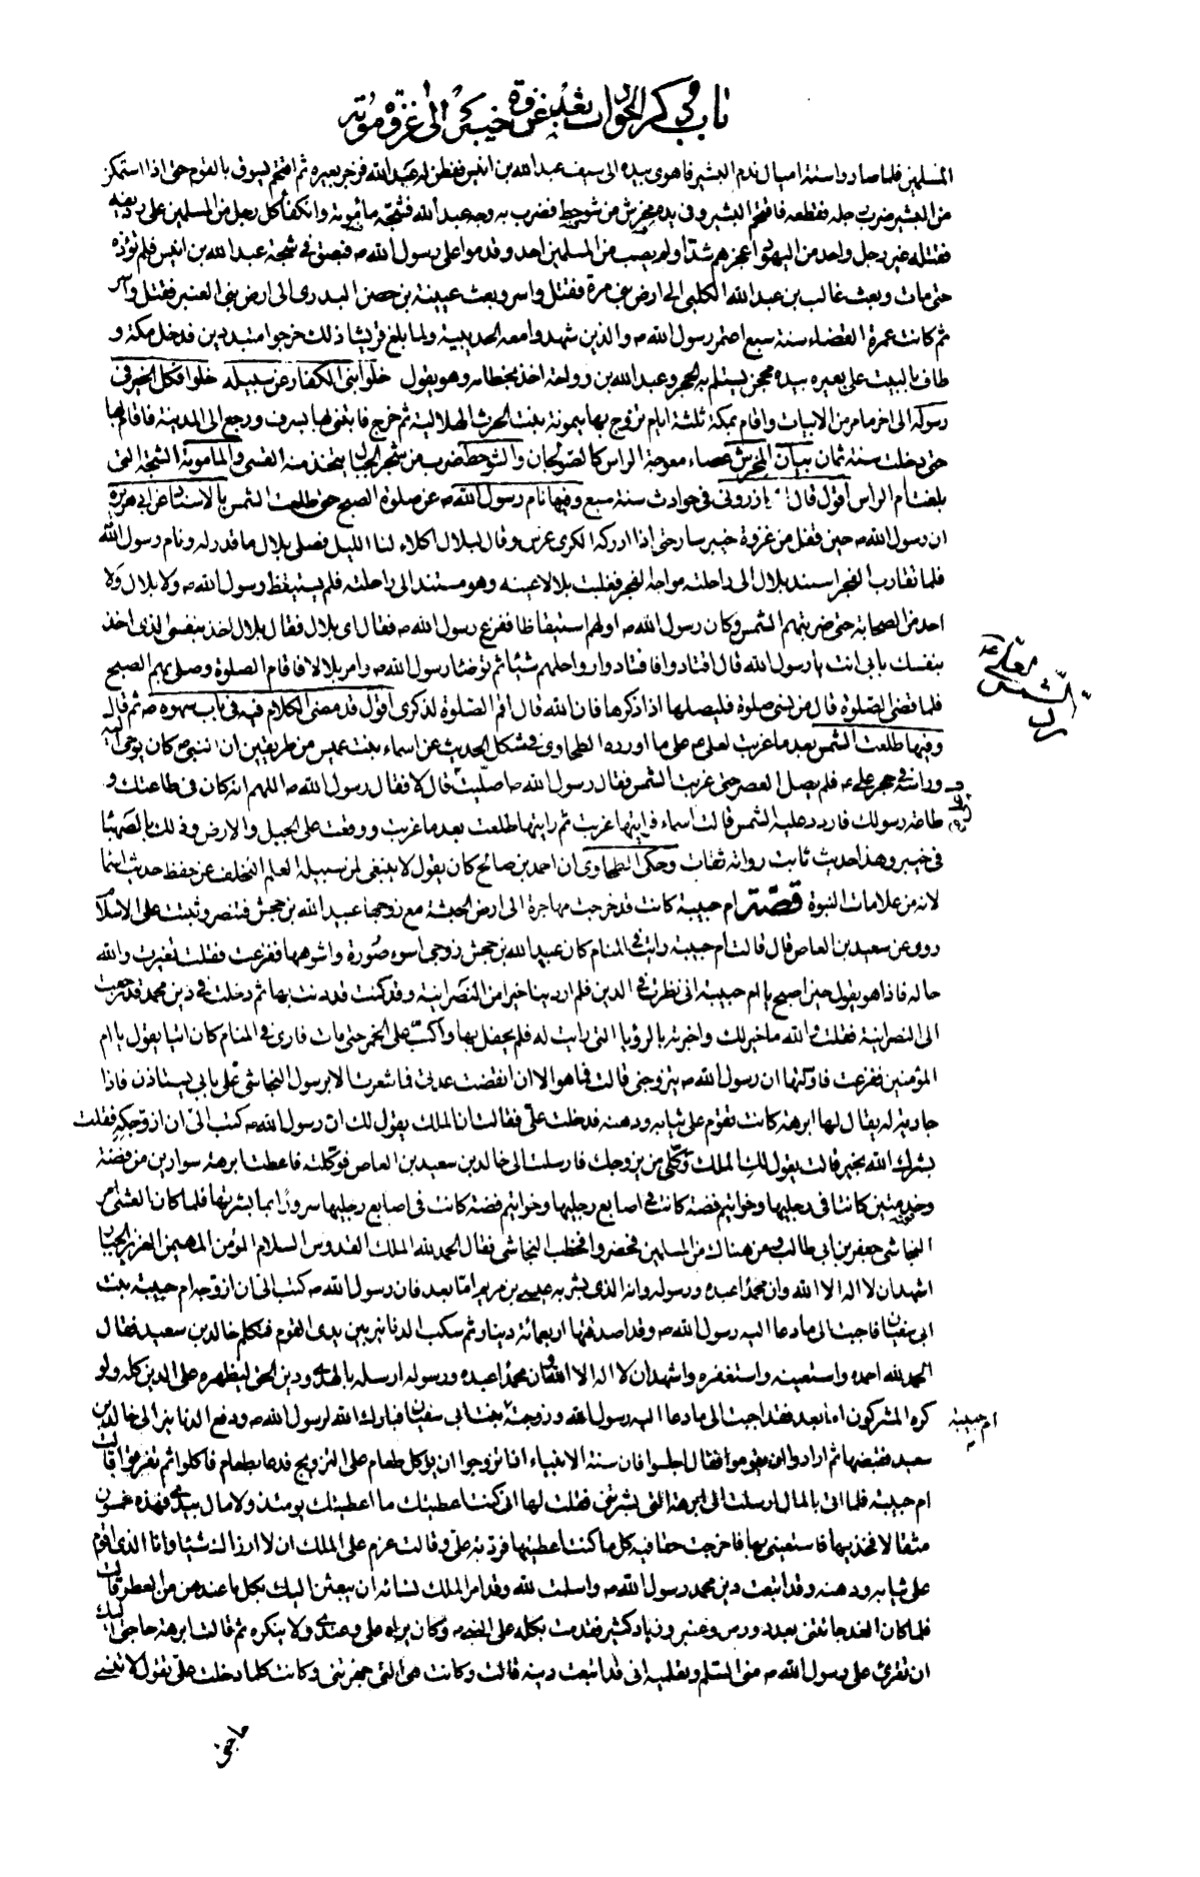 باب في ذكر الحوادث بعد غزوة خيبر الى غزوة موتة
المسلمين فلما صاروا ستة اميال ندم البشير فاهوى بيده الى سيف عبدالله بن انيس ففطن له عبدالله فزجر بعيره ثم اقتحم يسوق بالقوم حتى اذا استمكن
من البشير ضرب رجله فقطعه فاقتحم البشير وفي يده مخرش من شوحط فضرب به وجه عبدالله فشجه مأمومة وانكفأ كل رجل من المسلمين على رديفه
فقتله غير رجل واحد من اليهود اعجزهم شدا ولم يصب من المسلمين احد وقدموا على رسول الله ص فبصق في شجة عبدالله بن انيس فلم تؤذه
حتى مات وبعث غالب بن عبدالله الكلبي الى ارض بني مرة فقتل واسر وبعث عيينة بن حصن البدرى الى ارض بني العنبر فقتل واسر
ثم كانت عمرة القضاء سنة سبع اعتمر رسول الله ص والذين شهدوا معه الحديبية ولما بلغ قريشا ذلك خرجوا متبددين فدخل مكة و
طاف بالبيت على بعيره بيده محجن يستلم به الحجر وعبدالله بن رواحة اخذ بخطامه وهو يقول خلوا بني الكفار عن سبيله خلوا فكل الخير في
رسوله الى اخر ما مر من الابيات واقام بمكة ثلثة ايام تزوج بها ميمونة بنت الحرث الهلالية ثم خرج فابتنى بها بسرف ورجع الى المدينة فاقام بها
حتى دخلت سنة ثمان بيان المخرش عصاء معوجة الراس كالصولجان والشوحط ضرب من شجر الجبال يتخذ منه القسى والمأمومة الشجة التي
بلغت ام الراس اقول قال الكازروني في حوادث سنة سبع وفيها نام رسول الله ص عن صلوة الصبح حتى طلعت الشمس بالاسناد عن ابي هريرة
ان رسول الله ص حين قفل من غزوة خيبر سار حتى اذا ادركه الكرى عرس وقال لبلال اكلاء لنا الليل فصلى بلال ما قدر له ونام رسول الله
فلما تقارب الفجر استند بلال الى راحلته مواجه الفجر فغلبت بلالا عينه وهو مستند الى راحلته فلم يستيقظ رسول الله ص ولا بلال ولا
احد من الصحابة حتى ضربتهم الشمس وكان رسول الله ص اولهم استيقاظا ففزع رسول الله ص فقال اي بلال فقال بلال اخذ بنفسي الذي اخذ
بنفسك بابي انت يا رسول الله قال اقتادوا فاقتادوا رواحلهم شيئا ثم توضا رسول الله ص وامر بلالا فاقام الصلوة وصلى بهم الصبح
فلما قضى الصلوة قال من نسي صلوة فليصلها اذا ذكرها فان الله قال اقم الصلوة لذكرى اقول قد مضى الكلام فيه في باب سهوه ص ثم قال
وفيها طلعت الشمس بعد ما غربت لعلي ع على ما اورده الطحاوي في مشكل الحديث عن اسماء بنت عميس من طريقين ان النبي ص كان يوحى اليه
وراسه في حجر علي ع فلم يصل العصر حتى غربت الشمس فقال رسول الله ص اصليت قال لا فقال رسول الله ص اللهم انه كان في طاعتك و
طاعة رسولك فاردد عليه الشمس قالت اسماء فرايتها غربت ثم رايتها طلعت بعد ما غربت ووقعت على الجبل والارض وذلك بالصهباء
في خيبر وهذا حديث ثابت رواته ثقات وحكى الطحاوي ان احمد بن صالح كان يقول لا ينبغي لمن سبيله العلم التخلف عن حفظ حديث اسماء
لانه من علامات النبوة قصة ام حبيبة كانت قد خرجت مهاجرة الى ارض الحبشة مع زوجها عبيدالله بن جحش فتنصر وثبتت على الاسلام
روي عن سعيد بن العاص قال قالت ام حبيبة رايت في المنام كان عبيدالله بن جحش زوجي اسوء صورة واشوهها ففزعت فقلت تغيرت والله
حاله فاذا هو يقول حين اصبح يا ام حبيبة اني نظرت في الدين فلم ار دينا خيرا من النصرانية وقد كنت قد دنت بها ثم دخلت في دين محمد قد رجعت
الى النصرانية فقلت والله ما خير لك واخبرته بالرؤيا التي رايت له فلم يحفل بها واكب على الخمر حتى مات فارى في المنام كان اتيا يقول يا ام
المؤمنين ففزعت فاولتها ان رسول الله ص يتزوجني قالت فما هو الا ان انقضت عدتي فما شعرت الا برسول النجاشي على بابي يستاذن فاذا
جارية له يقال لها ابرهة كانت تقوم على ثيابه ودهنه فدخلت علي فقالت ان الملك يقول لك ان رسول الله ص كتب الي ان ازوجكه فقلت
بشرك الله بخير قالت يقول لك الملك وكلي من يزوجك فارسلت الى خالد بن سعيد بن العاص فوكلته فاعطت ابرهة سوارين من فضة
وخدمتين كانتا في رجليها وخواتيم فضة كانت في اصابع رجليها وخواتيم فضة كانت في اصابع رجليها سرورا بما بشرتها فلما كان العشي امر
النجاشي جعفر بن ابي طالب ومن هناك من المسلمين فحضروا فخطب النجاشي فقال الحمد لله الملك القدوس السلام المؤمن المهيمن العزيز الجبار
اشهد ان لا اله الا الله وان محمدا عبده ورسوله وانه الذي بشر به عيسى بن مريم اما بعد فان رسول الله ص كتب الي ان ازوجه ام حبيبة بنت
ابي سفيان فاجبت الى ما دعا اليه رسول الله ص وقد اصدقتها اربعمائة دينار ثم سكب الدنانير بين يدى القوم فتكلم خالد بن سعيد فقال
الحمد لله احمده واستعينه واستغفره واشهد ان لا اله الا الله وان محمدا عبده ورسوله ارسله بالهدى ودين الحق ليظهره على الدين كله ولو
كره المشركون اما بعد فقد اجبت الى ما دعا اليه رسول الله وزوجته بنت ابي سفيان فبارك الله لرسول الله ص ودفع الدنانير الى خالد بن
سعيد فقبضها ثم ارادوا ان يقوموا فقال اجلسوا فان سنة الانبياء اذا تزوجوا ان يؤكل طعام على التزويج فدعا بطعام فاكلوا ثم تفرقوا قالت
ام حبيبة فلما اتى بالمال ارسلت الى ابرهة التي بشرتني فقلت لها اني كنت اعطيتك ما اعطيتك يومئذ ولا مال بيدي فهذه خمسون
مثقالا فخذيها فاستعيني بها فاخرجت حقا فيه كل ما كنت اعطيتها فردته علي وقالت عزم علي الملك ان لا ارزأك شيئا وانا الذي اقوم
على ثيابه ودهنه وقد اتبعت دين محمد رسول الله ص واسلمت لله وقد امر الملك نسائه ان يبعثن اليك بكل ما عندهن من العطر قالت
فلما كان الغد جائتني بعود وورس وعنبر وزباد كثير فقدمت بكله على النبي ص وكان يراه علي وعندي ولا ينكره ثم قالت ابرهة حاجتي اليك
ان تقرئ على رسول الله ص مني السلم وتعلميه اني قد اتبعت دينه قالت وكانت هي التي جهزتني وكانت كلما دخلت علي تقول لا تنسي
حاجتي
رد الشمس لعلي ع
ام حبيبة